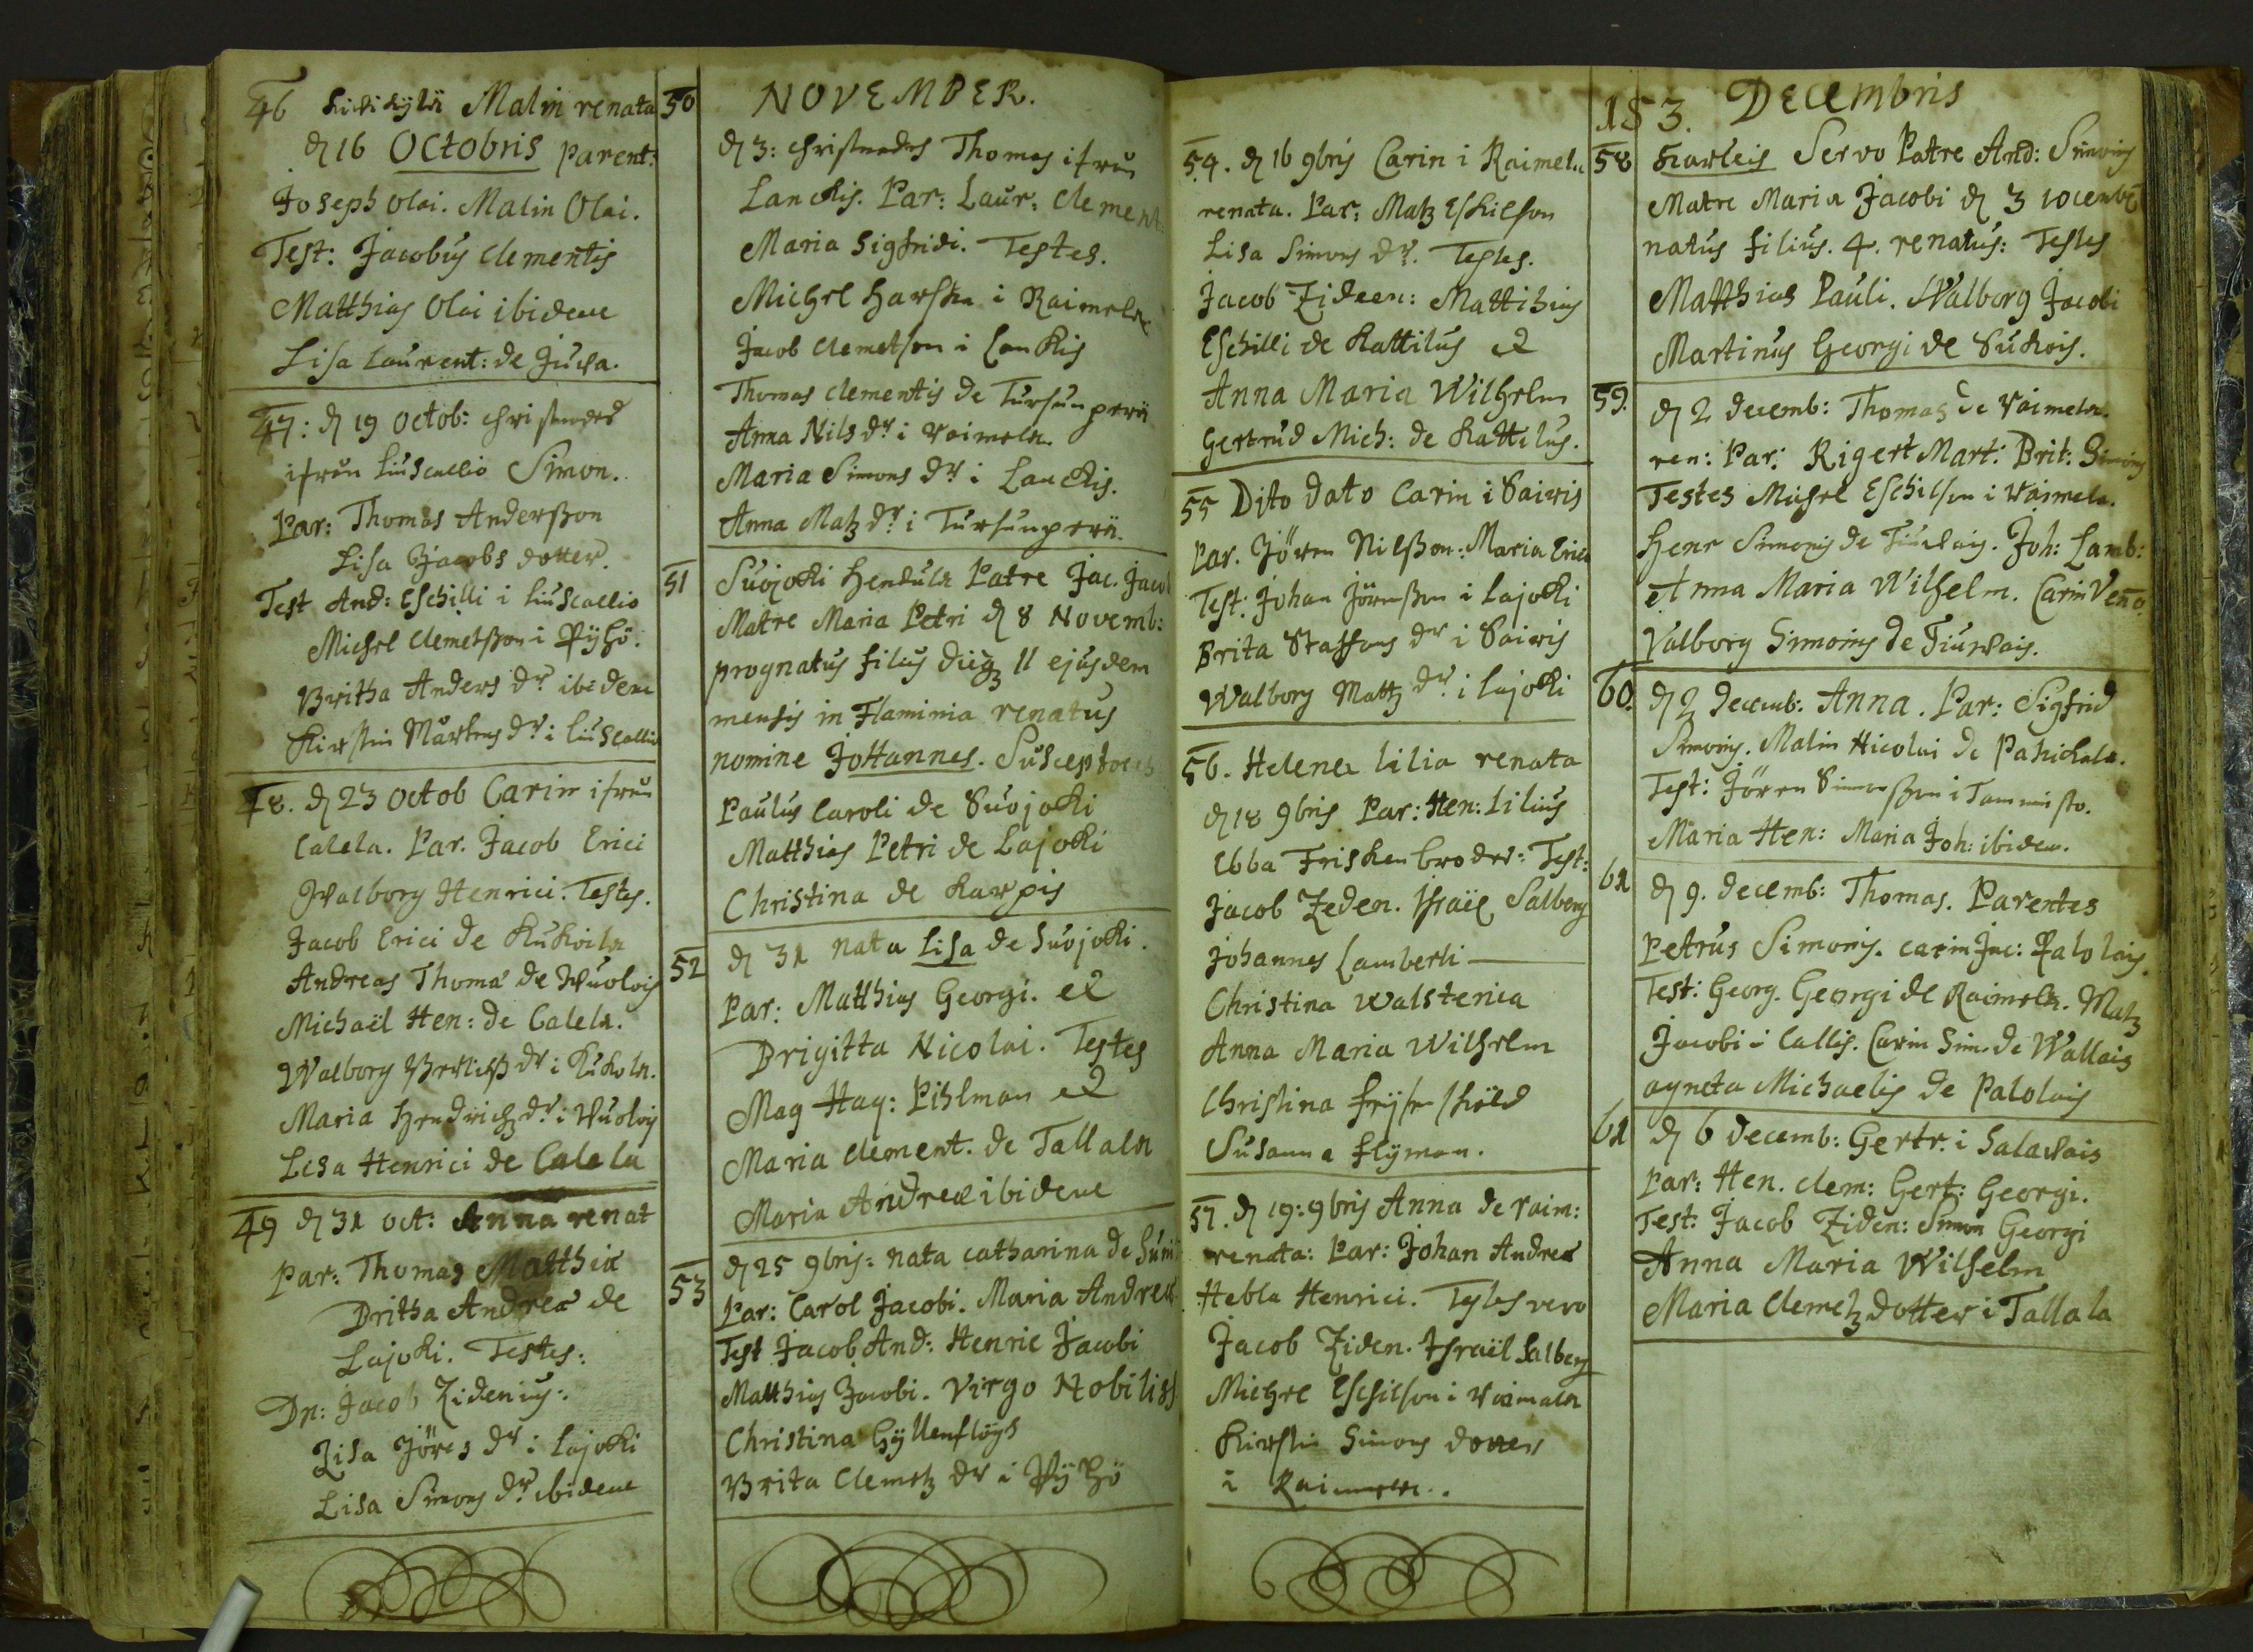 46 Malin renata
d 16 Octobris parent:
Joseph Olai. Malin Olai.
Test: Jacobus Clementis
Matthias Olai ibidem
Lisa Laurent: de Juva.
47: d 19 Octob: Christnades
ifrån Liuscallio Simon.
Par: Thomas Anderßon
Lisa Jacobs dotter.
Test And: Eschilli i Liuscallio
Michel Clemetßon i Pyhö.
Britha Anders dr ibidem
Kirstin Mårtens dr i Liuscallio
48. d 23 Octob Carin ifrån
Calela. Par. Jacob Erici
Walborg Henrici. Testes.
Jacob Erici de Kukoila
Andreas Thomæ de Wuolois
Michaël Hen: de Calela.
Walborg dr i Kukola.
Maria Hendrichz dr i Wuolois
Lisa Henrici de Calela
49 d 31 Oct: Anna renat
Par: Thomas Matthiæ
Britha Andreæ de
Lajoki. Testes:
Dn: Jacob Zidenius:
Lisa Jöres dr i Lajoki
Lisa Simons dr ibidem
50 NOVEMBER.
d 3: Christnades Thomas ifrån
Lanckis. Par: Laur: Clement:
Maria Sigfridi. Testes.
Michel Harska i Raimela
Jacob Clemetson i Lanckis
Thomas Clementis de Tursunperä
Anna Nils dr i Voimela.
Maria Simons dr i Lanckis.
Anna Matz dr i Tursunperä.
51 Suojoki Hendula Patre Jac. Jacob
Matre Maria Petri d 8 Novemb:
prognatus filius 11 ejusdem
mensis in Flaminia renatus
nomine Johannes. Susceptores
Paulus Caroli de Suojoki
Matthias Petri de Lajoki
Christina de Karpis
52 d 31 nata Lisa de Suojoki.
Par: Matthias Georgi. et
Brigitta Nicolai. Testes
Mag Hag: Pihlman et
Maria Clement. de Tallala
Maria Andreæ ibidem
53 d 25 9bris: nata Catharina de
Par: Carol Jacobi. Maria Andreæ
Test Jacob And: Henric Jacobi
Matthias Jacobi. Virgo Nobiliss
Christina Gyllenflögh
Brita Clemetz dr i Pyhö
54. d 16 9bris Carin i Raimela
renata. Par: Matz Eskilson
Lisa Simons dr. Testes.
Jacob Zideen: Matthias
Eschilli de Kattilus et
Anna Maria Wilhelm
Gertrud Mich: de Kattilus.
55 Dito dato Carin i Saivis
Par. Jören Nilßon: Maria Erici
Test: Johan Jörenßon i Lajoki
Brita Staffans dr i Saivis
Walborg Mattz dr i Lajoki
56. Helena Lilia renata
d 18 9bris Par: Hen: Lilius
Ebba Friskenbroder: Test:
Jacob Zeden. Israël Salberg
Johannes Lamberti
Christina Walstenia
Anna Maria Wilhelm
Christina
Susanna Flyman.
57. d 19: 9bris Anna de Vaim:
renata: Par: Johan Andreæ
Hebla Henrici. Testes vero
Jacob Ziden. Israël Salberg
Michel Eschilson i Voimala
Kirstin Simons dotter
i Raimela.
153. Decembris
58 Servo Patre And: Simonis
Matre Maria Jacobi d 3 10cembr
natus filius. 4. renatus: Testes
Matthias Pauli. Walborg Jacobi
Martinus Georgi de Sukois.
59. d 2 Decemb: Thomas de Vaimela.
ren: Par: Rigert Mart: Brit: Simonis
Testes Michel Eschilson i Vaimela.
Henr Simonis de Joh: Lamb:
Anna Maria Wilhelm. Carin
Valborg Simonis de
60. d 2 Decemb: Anna. Par: Sigfrid
Simonis. Malin Nicolai de Pahickala.
Test: Jören Simonßon i Tammisto.
Maria Hen: Maria Joh: ibidem.
61 d 9. Decemb: Thomas. Parentes
Petrus Simonis. Carin Jac: Palolais.
Test: Georg. Georgi de Raimela. Matz
Jacobi i Callis. Carin Sim. de Wallais
Agneta Michaelis de Palolais
61 d 6 Decemb: Gertr. i Salavais
Par: Hen. Clem: Gert: Georgi.
Test: Jacob Ziden: Simon Georgi
Anna Maria Wilhelm
Maria Clemetz dotter i Tallala